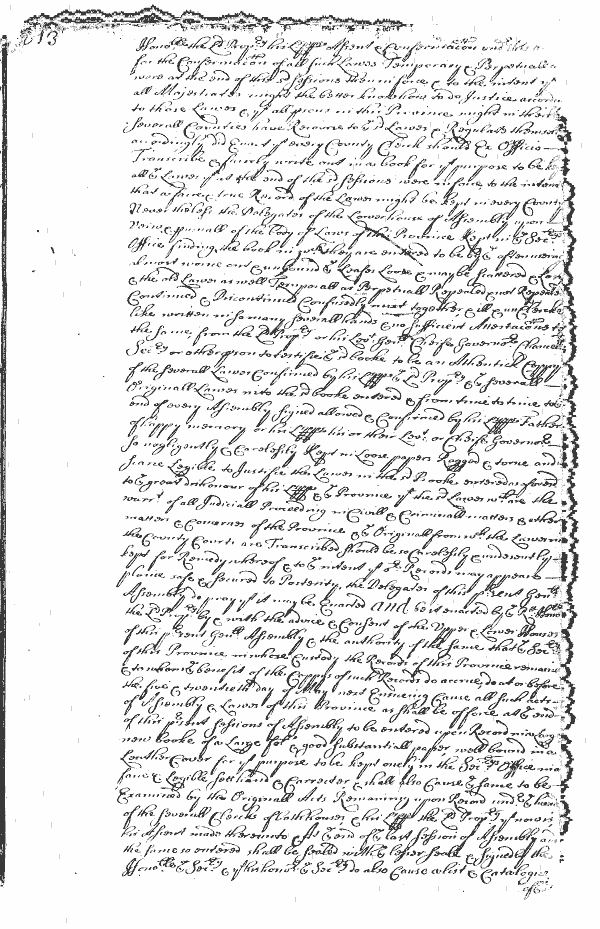 213
Hono:ble the Ld Propry his Lopps Assent & Confirmacon und:
for the Confirmacon of all such Lawes Temporary & Perpetuall a
were at the end of this sd Sessions then in force & to the intent yt
all Majestrates might the better know how to do Justice accordi
to those Lawes & yt all psons in this Province might in their
severall Counties have Recourse to ye sd Lawes & Regulate themse
accordingly ye sd Enact yt every County Clerk should Ex Officio
Transcribe & fairely write out in a book for yt purpose to be ke
all ye Lawes yt at the end of the sd Sessions were in force to the intent
that a faire & true Record of the Lawes might be kept in every County
Neverthelesse the Delegates of the Lower house of Assembly upon
veiw & perusall of the body of Laws of this Province kept in ye Secrys
Office finding the book in which they are entered to be by often
almost worne out & unbound & Leafes Loose & may be scattered & Lost
& the old Lawes as well Temporall as Perpetuall Repealed & not Repealed
Continued & Discontinued Confusedly put together all
like written in so many severall hands & no sufficient Attestacons to
the same, from the Ld Propry or his Levt Genll Cheife Governor Chancell
Secry or other pson to certifie ye sd booke to be an Authentick Coppy
of the severall Lawes Confirmed by his Lopp ye Ld Propry & ye severall
Originall Lawes into the sd booke entered & from time to time to
end of every Assembly signed allowed & Confirmed by his Lopps Father
of happy memory or his Lopp his or their Levt or Cheife Governor
so negligently & Carelesly Kept in Loose papers Ragged & torne and
scarce Legible to Justifie the Lawes in the sd Booke entered as aforesd
to ye great dishonour of his Lopp & ye Province yt the sd Lawes wch are the
warrt of all Judiciall Proceeding in Civill & Criminall matters & other
matters & Concernes of the Province & ye Originall from wch the Lawes in
the County Courts are Transcribed should be so Carelesly & undecently
kept for Remedy whereof & to ye intent yt ye Records may appeare
plaine safe & secured to Posterity, the Delegates of this psent Genll
Assembly do pray yt it may be Enacted And be it enacted by ye Rt Hono
the Ld Propry by & with the advice & Consent of the Upper & Lower Houses
of this psent Genll Assembly & the authority of the same that ye Secry
of this Province in whose Custody the Records of this Province remaine
& to whom ye benefit of the Coppys of such Records do accrue, do at or before
the five & twentieth day of May next Ensueing Cause all such acts
of Assembly & Lawes of this Province as shall be of force at ye end
of this psent Sessions of Assembly to be entered upon Record in
new booke of a Large folo & good substantiall paper well bound in a
Leather Cover for yt purpose to be kept onely in the Secrys Office in a
faire & Legible sett hand & Carrecter & shall also Cause ye same to be
Examined by the Originall Acts Remaineing upon Record und ye hands
of the severall Clerks of both houses & his Lopp the Ld Propry yt now is
his Assent made thereunto & At ye end of ye last Session of Assembly
the same so entered shall be sealed with ye lesser seale & Signed by the
Hono:ble ye Secry & yt his hono ye Secry do also Cause a list & Catalogue
of